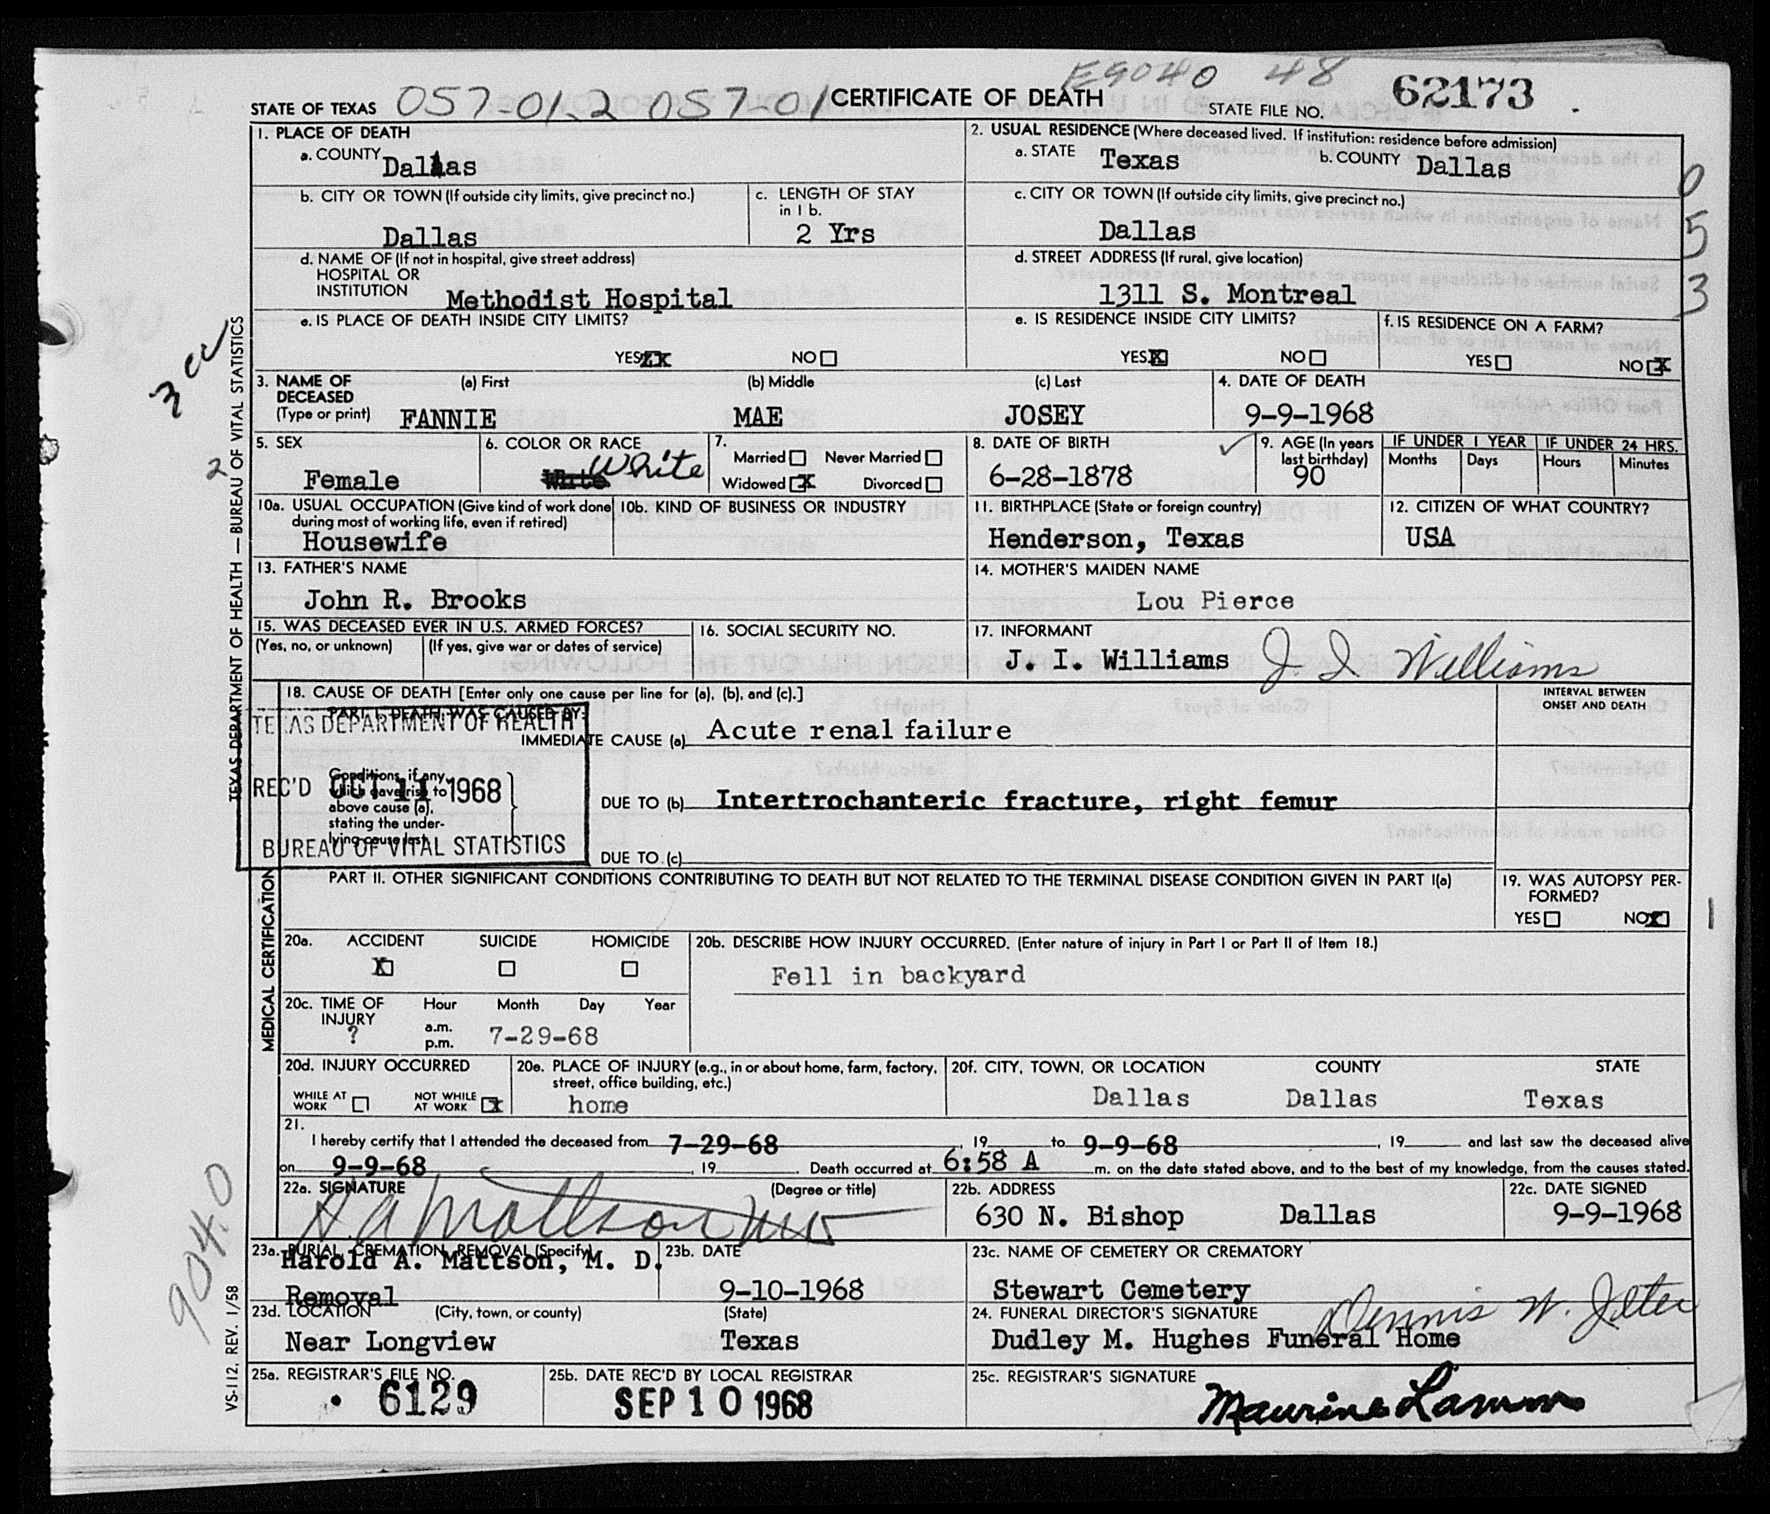 E9040 48
STATE OF TEXAS 057-01.2 057-01 CERTIFICATE OF DEATH STATE FILE NO. 62173
1. PLACE OF DEATH
a. COUNTY Dallas
2. USUAL RESIDENCE (Where deceased lived. If institution: residence before admission)
a. STATE Texas b. COUNTY Dallas
b. CITY OR TOWN (If outside city limits, give precinct no.)
Dallas
c. LENGTH OF STAY in 1 b.
2 Yrs
c. CITY OR TOWN (If outside city limits, give precinct no.)
Dallas
0
5
3
d. NAME OF (If not in hospital, give street address)
HOSPITAL OR
INSTITUTION Methodist Hospital
d. STREET ADDRESS (If rural, give location)
1311 S. Montreal
e. IS PLACE OF DEATH INSIDE CITY LIMITS?
YES XX NO
e. IS RESIDENCE INSIDE CITY LIMITS?
YES X NO
f. IS RESIDENCE ON A FARM?
YES NO X
3. NAME OF DECEASED (Type or print)
(a) First (b) Middle (c) Last
FANNIE MAE JOSEY
4. DATE OF DEATH
9-9-1968
5. SEX
Female
6. COLOR OR RACE
White White
7.
Married Never Married
Widowed X Divorced
8. DATE OF BIRTH
6-28-1878
9. AGE (In years last birthday)
90
IF UNDER 1 YEAR IF UNDER 24 HRS.
Months Days Hours Minutes
10a. USUAL OCCUPATION (Give kind of work done
during most of working life, even if retired)
Housewife
10b. KIND OF BUSINESS OR INDUSTRY
11. BIRTHPLACE (State or foreign country)
Henderson, Texas
12. CITIZEN OF WHAT COUNTRY?
USA
13. FATHER'S NAME
John R. Brooks
14. MOTHER'S MAIDEN NAME
Lou Pierce
15. WAS DECEASED EVER IN U.S. ARMED FORCES?
(Yes, no, or unknown) (If yes, give war or dates of service)
16. SOCIAL SECURITY NO.
17. INFORMANT
J. I. Williams J. I. Williams
18. CAUSE OF DEATH [Enter only one cause per line for (a), (b), and (c).]
INTERVAL BETWEEN
ONSET AND DEATH
PART I. DEATH WAS CAUSED BY:
TEXAS DEPARTMENT OF HEALTH
IMMEDIATE CAUSE (a) Acute renal failure
REC'D OCT 11 1968
Conditions, if any,
which gave rise to
above cause (a),
stating the under-
lying cause last.
DUE TO (b) Intertrochanteric fracture, right femur
BUREAU OF VITAL STATISTICS
DUE TO (c)
PART II. OTHER SIGNIFICANT CONDITIONS CONTRIBUTING TO DEATH BUT NOT RELATED TO THE TERMINAL DISEASE CONDITION GIVEN IN PART I(a)
19. WAS AUTOPSY PER-
FORMED?
YES NO X
20a. ACCIDENT SUICIDE HOMICIDE
X
20b. DESCRIBE HOW INJURY OCCURRED. (Enter nature of injury in Part I or Part II of Item 18.)
Fell in backyard
20c. TIME OF INJURY
Hour Month Day Year
? a.m. p.m. 7-29-68
20d. INJURY OCCURRED
WHILE AT WORK NOT WHILE AT WORK X
20e. PLACE OF INJURY (e.g., in or about home, farm, factory,
street, office building, etc.)
home
20f. CITY, TOWN, OR LOCATION COUNTY STATE
Dallas Dallas Texas
21.
I hereby certify that I attended the deceased from 7-29-68, 19 to 9-9-68, 19 and last saw the deceased alive
on 9-9-68, 19 . Death occurred at 6:58 A m. on the date stated above, and to the best of my knowledge, from the causes stated.
22a. SIGNATURE (Degree or title)
H A Mattson MD
22b. ADDRESS
630 N. Bishop Dallas
22c. DATE SIGNED
9-9-1968
23a. BURIAL, CREMATION, REMOVAL (Specify)
Harold A. Mattson, M. D.
Removal
23b. DATE
9-10-1968
23c. NAME OF CEMETERY OR CREMATORY
Stewart Cemetery
23d. LOCATION (City, town, or county) (State)
Near Longview Texas
24. FUNERAL DIRECTOR'S SIGNATURE
Dennis W. Jeter
Dudley M. Hughes Funeral Home
25a. REGISTRAR'S FILE NO.
6129
25b. DATE REC'D BY LOCAL REGISTRAR
SEP 10 1968
25c. REGISTRAR'S SIGNATURE
Maurine Lamm
TEXAS DEPARTMENT OF HEALTH — BUREAU OF VITAL STATISTICS
MEDICAL CERTIFICATION
VS-112, REV. 1/58
2
904.0